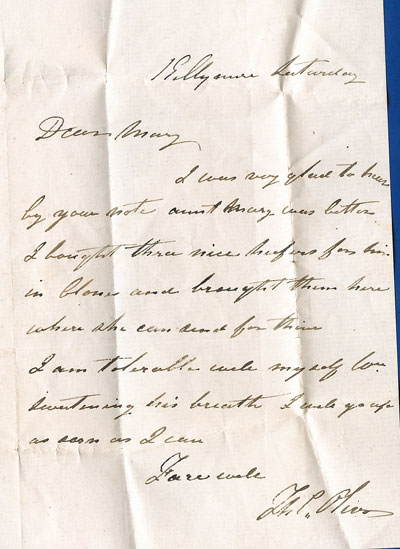 Kellymore Saturday
Dear Mary
I was very glad to hear
by your note aunt Mary was better
I bought three nice heifers for him
in Clones and brought them here
where she can send for them
I am tolerable well myself
sweetening his breath I will go up
as soon as I can
Farewell